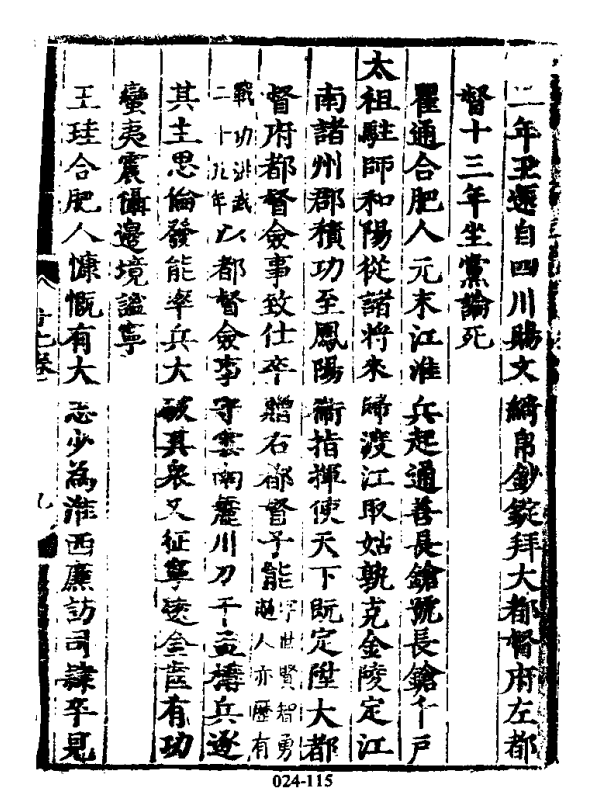 二年丑還自四川賜文綺帛鈔錠拜大都督府左都
督十三年坐黨論死
瞿通合肥人元末江淮兵起通善長鎗號長鎗千戸
太祖駐師和陽從諸將來歸渡江取姑孰克金陵定江
南諸州郡積功至鳳陽衞指揮使天下既定陞大都
督府都督僉事致仕卒贈右都督子能字世賢智勇
過人亦歷有
戰功洪武
二十九年以都督僉事守雲南麓川刀干孟搆兵逐
其主思倫發能率兵大破其衆又征寧遠金齒有功
蠻夷震懾邊境謐寧
王珪合肥人慷慨有大志少為淮西廉訪司隷卒見
九
024-115